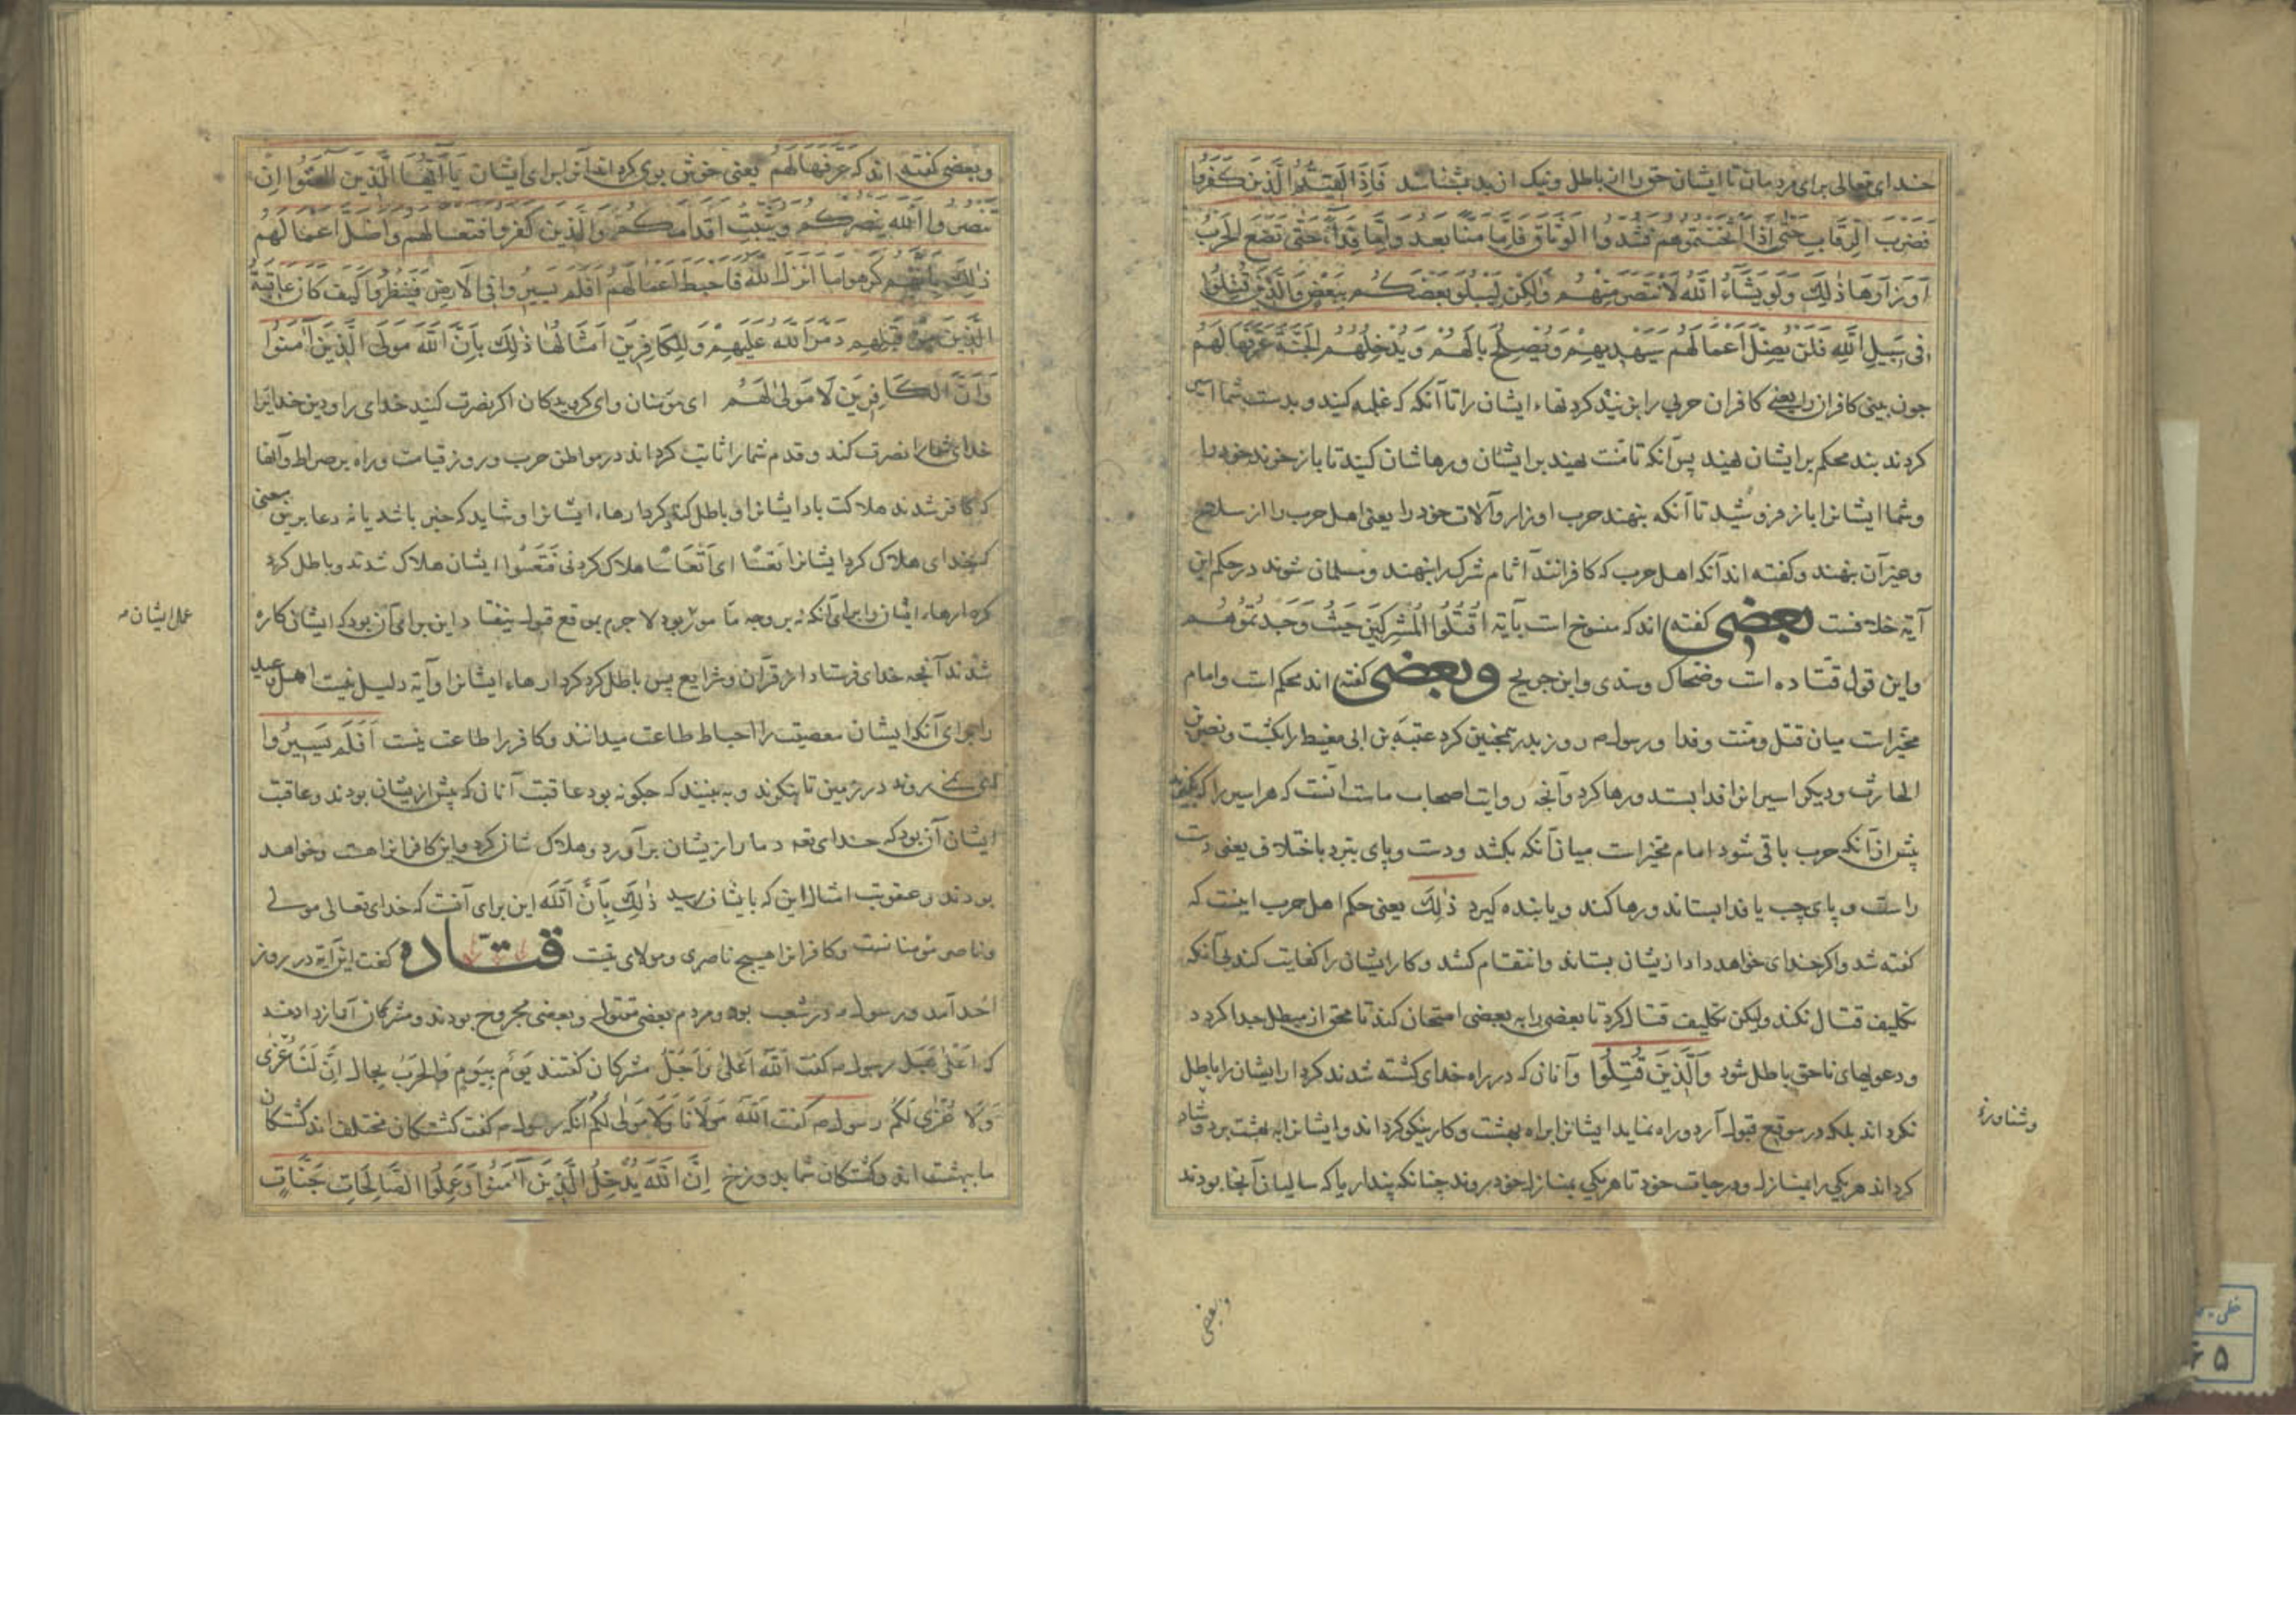 خدای تعالی برای مردمان تا ایشان حق را از باطل و نیک از بد بشناسد فَاِذَا لَقِیتُمُ الَّذینَ کَفَرُوا
فَضَرْبَ الرِّقَابِ حَتّی اِذَا اَثْخَنْتُمُوهم فَشُدوا الْوَثَاقَ فَاِمّا مَنّا بَعد وَاِمّا فِدَآءً حَتّی تَضَعَ الحَرْبُ
اَوزَارَهَا ذٰلِكَ وَلَو یَشَآءُ اللّه لَانْتَصَرَ مِنْهُم وَلٰکِنْ لِیَبْلُوَ بَعْضَکُم بِبَعْضٍ وَالَّذینَ قُتِلُوا
فی سَبیلِ اللّهِ فَلَن یُضِلَّ اَعمَالَهُم سَیَهْدِیهِمْ وَیُصْلِحُ بَالَهُمْ وَیُدْخِلُهُم الجَنَّةَ عَرَّفَهَا لَهُم
چون بینی کافران را یعنی کافران حربی را بزنید کردنهاء ایشان را تا آنکه که غلبه کنید و بدست شما اسیر
کردند بند محکم بر ایشان نهید پس آنکه تا منت نهید بر ایشان و رهاشان کنید تا باز خرند خود را
و شما ایشانرا باز فروشید تا آنکه بنهند حرب اوزار و آلات خود را یعنی اهل حرب را از سلاح
و غیر آن بنهند و کفته اند آنکه اهل حرب که کافرانند آثام شرک را بنهند و مسلمان شوند در حکم این
آیة خلافست بعضی کفته اند که منسوخ است بآیة اُقْتُلُوا الْمُشْرِکینَ حَیْثُ وَجَدْتُمُوهُم
و این قول قتاده است و ضحاک و سدی و ابن جریج و بعضی کفته اند محکم است و امام
مخیّر است میان قتل و منت و فدا و رسول ص روز بدر همچنین کرد عتبة بن ابی معیط را بکشت و نضر بن
الحارث و دیکر اسیرانرا فدا بستد و رها کرد و آنچه روایت اصحاب ماست آنست که هر اسیر را که بکیرند
پیش از آنکه حرب باقی شود امام مخیّر است میان آنکه بکشد و دست و پای ببرد باختلاف یعنی دست
راست و پای چپ یا فدا بستاند و رها کند و یا بنده کیرد ذٰلِكَ یعنی حکم اهل حرب اینست که
کفته شد و اکر خدای خواهد داد ازیشان بستاند و انتقام کشد و کار ایشان را کفایت کند بی آنکه
تکلیف قتال نکند ولیکن تکلیف قتال کرد تا بعضی را به بعضی امتحان کند تا محق از مبطل جدا کردد
و دعویهای ناحق باطل شود وَالَّذینَ قُتِلُوا و آنان که در راه خدای کشته شدند کردار ایشان را باطل
نکرداند بلکه در موقع قبول آرد و راه نماید ایشانرا براه بهشت و کار نیکو کرداند و ایشانرا به بهشت برد و شاد
و شناوره
کرداند هر یکی را بمنازل و درجات خود تا هر یکی بمنازل خود بروند چنانکه پنداریا که سالیان آنجا بودند
و بعضی
و بعضی کفته اند که عَرَّفَهَا لَهُمْ یعنی خوش بوی کرد آنرا برای ایشان یَا اَیُّهَا الَّذینَ آمَنُوا اِنْ
تَنْصُروا اللّه یَنْصُرْکُم وَیُثَبِّتْ اَقدَامَکُم وَالَّذینَ کَفَروا فَتَعْسا لَهُم وَاَضَلَّ اَعْمَالَهُم
ذٰلِكَ بِاَنَّهُم کَرِهوا مَا اَنْزَلَ اللّه فَاَحبَطَ اَعمَالَهُمْ اَفَلَم یَسیرُوا فی الاَرضِ فَیَنْظُروا کَیْفَ کَانَ عَاقِبَةُ
الَّذینَ مِنْ قَبْلِهِم دَمَّرَ اللّه عَلَیهِمْ وَلِلْکَافِرینَ اَمْثَالُهَا ذٰلِكَ بِاَنَّ اللّهَ مَوْلَی الَّذینَ آمَنُوا
وَاَنَّ الْکَافِرینَ لَا مَوْلیٰ لَهُمْ ای مؤمنان و ای کرویدکان اکر نصرت کنید خدای را و دین خدایرا
خدای شما را نصرت کند و قدم شما را ثابت کرداند در مواطن حرب و روز قیامت و راه بر صراط و آنها
که کافر شدند هلاکت باد ایشانرا و باطل کناد کردارهاء ایشانرا و شاید که خبر باشد یا نه دعا برین معنی
که خدای هلاک کرد ایشانرا تَعْسًا ای اَتْعَاسًا هلاک کردنی فَتَعَسُوا ایشان هلاک شدند و باطل کرد
کردارهاء ایشان را برای آنکه نه بر وجه مأمور بود لا جرم بموقع قبول نیفتاد و این برای آن بود که ایشانی کاره
عمل ایشان ص
شدند آنچه خدای فرستاد از قرآن و شرایع پس باطل کرد کردارهاء ایشانرا و آیة دلیل نیست اهل وعید
را برای آنکه ایشان معصیت را احباط طاعت میدانند و کافر را طاعت نیست اَفَلَمْ یَسیرُوا
نمی روند در زمین تا بنکرند و به بینند که چکونه بود عاقبت آنان که پیش ازیشان بودند و عاقبت
ایشان آن بود که خدای تعه دمار ازیشان برآورد و هلاکشان کرد و این کافرانرا هست و خواهد
بودند و عقوبت امثال این که بایشان رسید ذٰلِكَ بِاَنَّ اللّهَ این برای آنست که خدای تعالی مولی
و ناصر مؤمنانست و کافرانرا هیچ ناصری و مولای نیست قتاده کفت این آیة در روز
احد آمد و رسول ص در شعب بود و مردم بعضی مقتول و بعضی مجروح بودند و مشرکان آواز دادند
که اُعْلُ هُبَل رسول ص کفت اَللّهُ اَعْلیٰ وَاَجَلُّ مشرکان کفتند یَوْمٌ بِیَومٍ وَالحَرْبُ سِجال اِنَّ لَنَا عُزّی
وَلَا عُزّی لَکُم رسول ص کفت اَللّهُ مَوْلَانَا وَلَا مَوْلی لَکُمْ آنکه رسول ص کفت کشتکان مختلف اند کشتکان
ما بهشت اند و کشتکان شما بدوزخ اِنَّ اللّهَ یُدْخِلُ الَّذینَ آمَنُوا وَعَمِلُوا الصَّالِحَاتِ جَنَّاتٍ